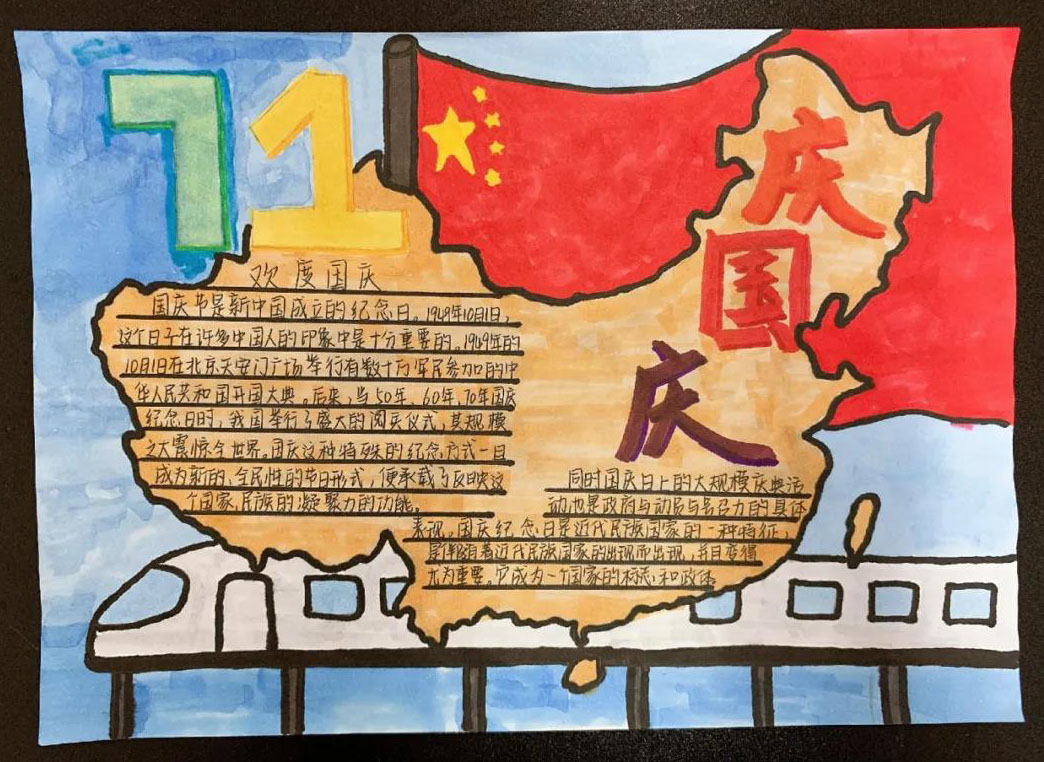 71
庆
国
庆
欢度国庆
国庆节是新中国成立的纪念日。1949年10月1日,
这个日子在许多中国人的印象中是十分重要的。1949年的
10月1日在北京天安门广场举行有数十万军民参加的中
华人民共和国开国大典。后来,当50年、60年、70年国庆
纪念日时,我国举行了盛大的阅兵仪式,其规模
之大震惊全世界。国庆这种特殊的纪念方式一旦
成为新的、全民性的节日形式,便承载了反映这
个国家、民族的凝聚力的功能。
同时国庆日上的大规模庆典活
动,也是政府与动员与号召力的具体
表现。国庆纪念日是近代民族国家的一种特征,
是伴随着近代民族国家的出现而出现,并且变得
尤为重要。它成为一个国家的标志和政体